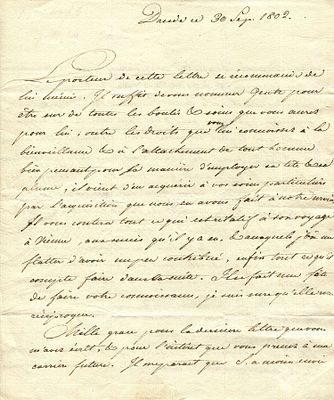 Dresde ce 30 Sep. 1802.
Le porteur de cette lettre se recommande de
lui même. Il suffit de vous nommer Gentz pour
être sur de toutes les bontés & soins que vous aurez
pour lui; outre les droits que vous lui connoissez à la
bienveillance & à l'attachement de tout homme
bien pensant pour la manière d'employer sa tête & sa
plume, il vient d'en acquérir à vos soins particuliers
par l'acquisition que nous en avons fait à notre
Il vous contera tout ce qui est relatif à son voyage
à Vienne, aux succès qu'il y a eu, & auxquels j'ose me
flatter d'avoir un peu contribué, enfin tout ce qu'il
compte faire dans la suite. Il se fait une fête
de faire votre connoissance, je suis sur qu'elle sera
réciproque.
Mille grace pour la dernière lettre que vous
m'avez écrit, & pour l'intérêt que vous prenez à ma
carrière future. Il me parait que S. a moins envie